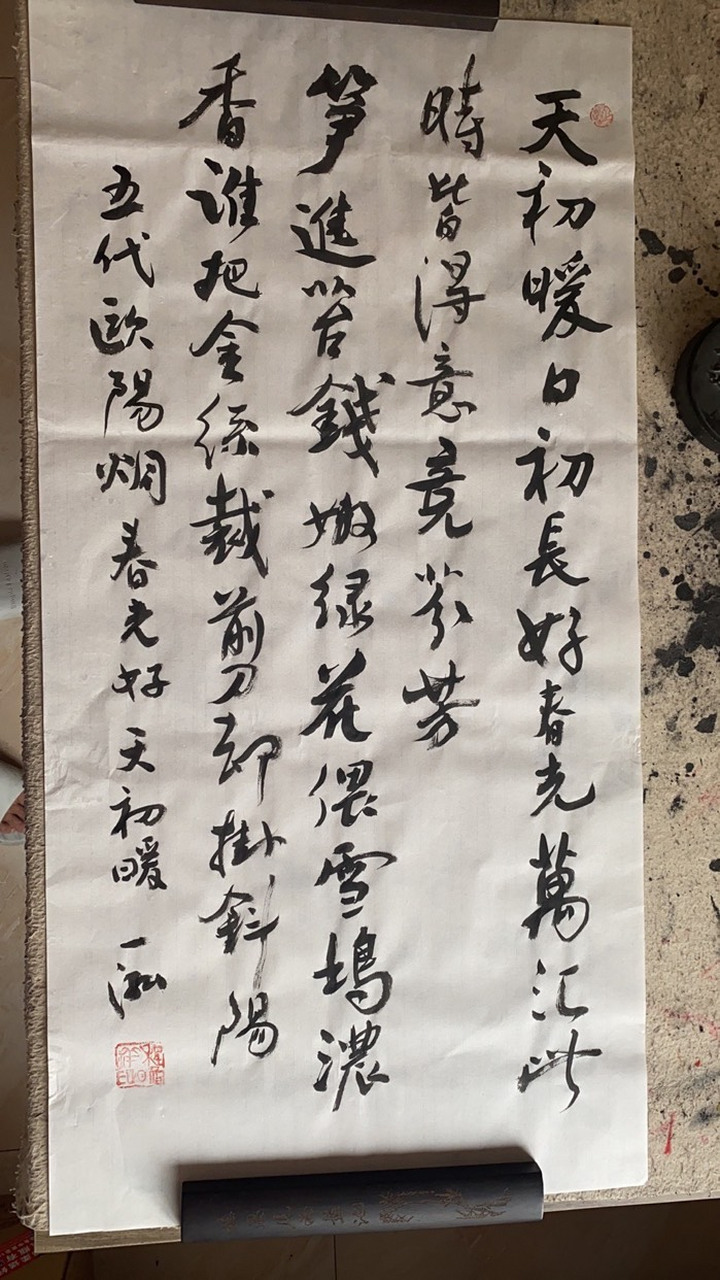 天初暖日初長好春光萬汇此
時皆得意竞芬芳
笋進苔錢嫩绿花偎雪塢濃
香誰把金絲裁剪却掛斜陽
五代歐陽炯春光好天初暖